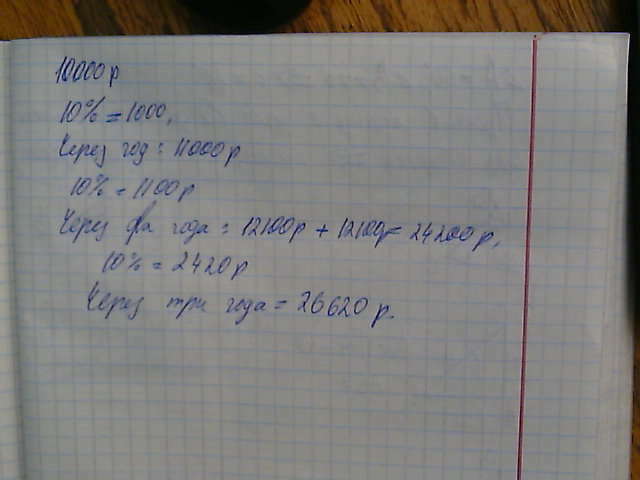 10000р
10% = 1000,
Через год = 11000р
10% = 1100р
Через два года = 12100р + 12100р = 24200р,
10% = 2420р
Через три года = 26620р.